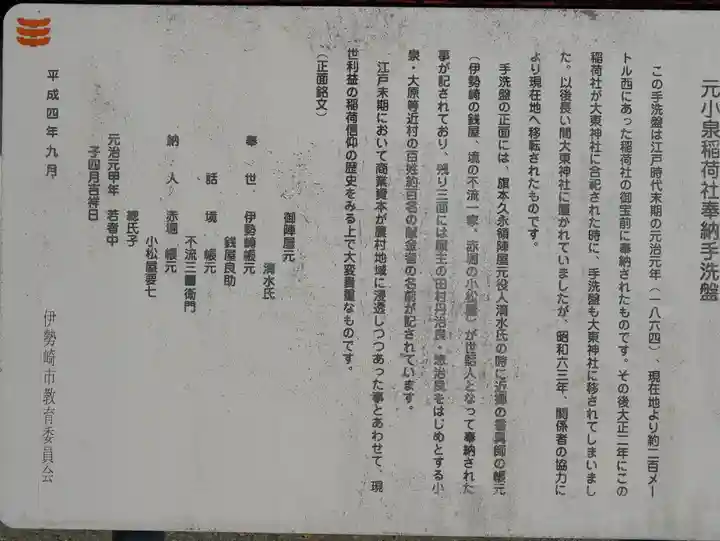 元小泉稲荷社奉納手洗盤
この手洗盤は江戸時代末期の元治元年（一八六四）、現在地より約二百メー
トル西にあった稲荷社の御宝前に奉納されたものです。その後大正二年にこの
稲荷社が大東神社に合祀された時に、手洗盤も大東神社に移されてしまいまし
た。以後長い間大東神社に置かれていましたが、昭和六三年、関係者の協力に
より現在地へ移転されたものです。
手洗盤の正面には、旗本久永領陣屋元役人清水氏の時に近郷の香具師の帳元
（伊勢崎の銭屋、境の不流一家、赤堀の小松屋）が世話人となって奉納された
事が記されており、残り三面には願主の田村丹治良・惣治良をはじめとする小
泉・大原等近村の百姓約百名の献金者の名前が記されています。
江戸末期において商業資本が農村地域に浸透しつつあった事とあわせて、現
世利益の稲荷信仰の歴史をみる上で大変貴重なものです。
（正面銘文）
御陣屋元
清水氏
奉 世 伊勢崎帳元
銭屋良助
話 境 帳元
不流三右衛門
納 人 赤堀 帳元
小松屋要七
惣氏子
元治元甲年 若者中
子四月吉祥日
平成四年九月
伊勢崎市教育委員会